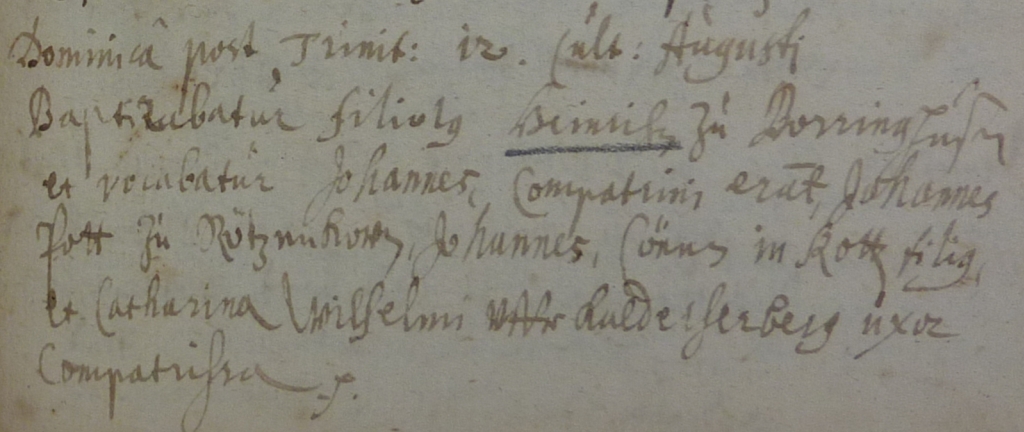 Dominica post Trinit: 12. (ult: Augusti
Baptizabatur filiolq Heinrich zu Borringhusen
et vocabatur Johannes, Compatrini erāt, Johannes
Pott zu Johannes, in Rott filiq,
et Catharina Wilhelmi uffr Kalderherberg uxor
Compatrissa